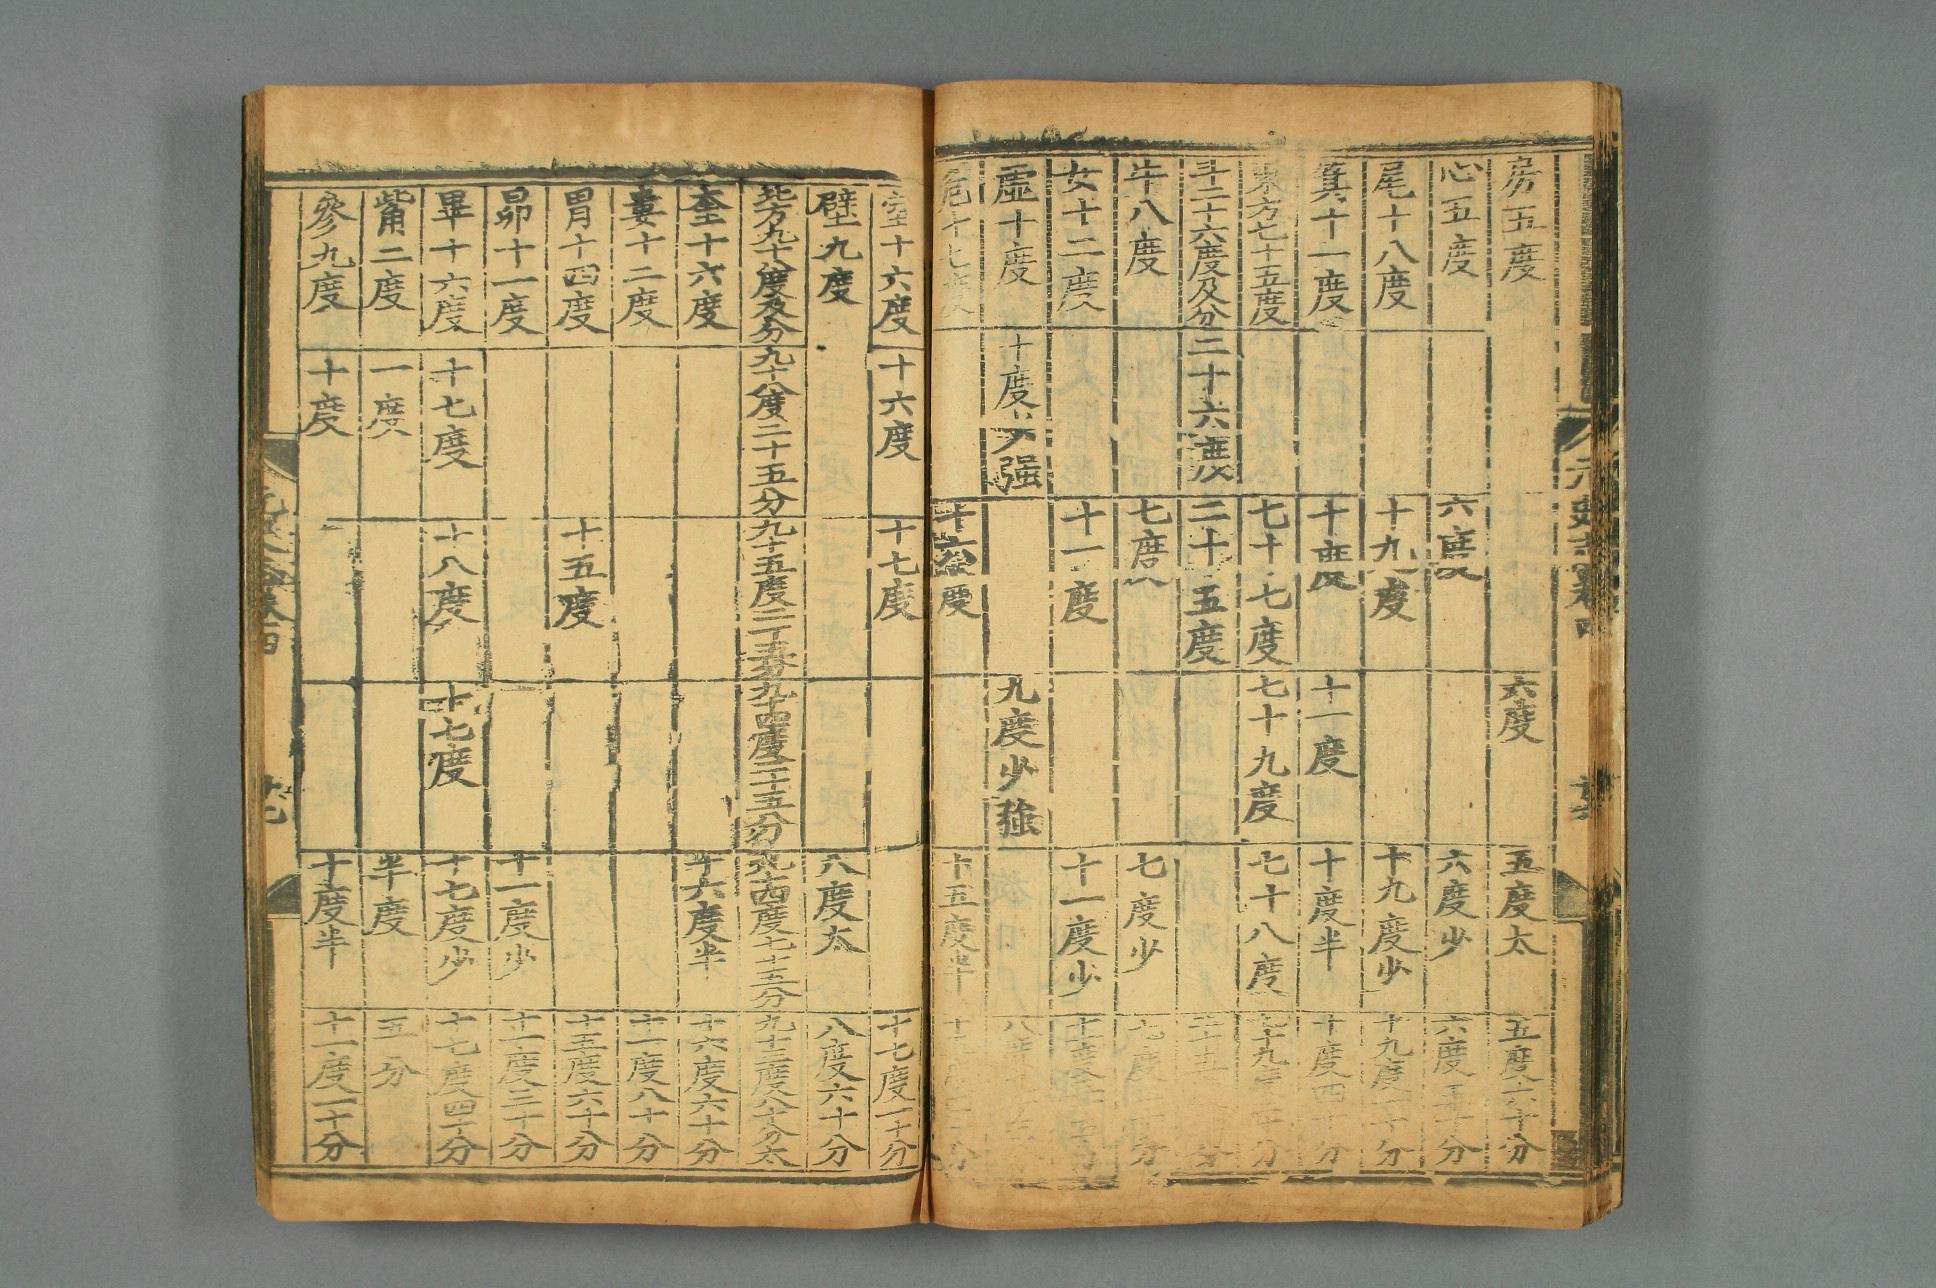 房五度 六度 五度太 五度六十分
心五度 六度 六度少 六度五十分
尾十八度 十九度 十九度少 十九度一十分
箕十一度 十度 十一度 十度半 十度四十分
東方七十五度 七十七度 七十九度 七十八度
斗二十六度及分 二十六度 二十五度
牛八度 七度 七度少
女十二度 十一度 十一度少
虛十度 十度少强 九度少強
危十七度 十六度 十五度半
室十六度 十六度 十七度 十七度一十分
壁九度 八度太 八度六十分
北方九十八度及分 九十八度二十五分 九十五度二十五分 九十四度二十五分 度七十五分 九十三度八十分太
奎十六度 十六度半 十六度六十分
婁十二度 十一度八十分
胃十四度 十五度 十五度六十分
昴十一度 十一度少 十一度三十分
畢十六度 十七度 十八度 十七度 十七度少 十七度四十分
觜二度 一度 半度 五分
參九度 十度 十度半 十一度一十分